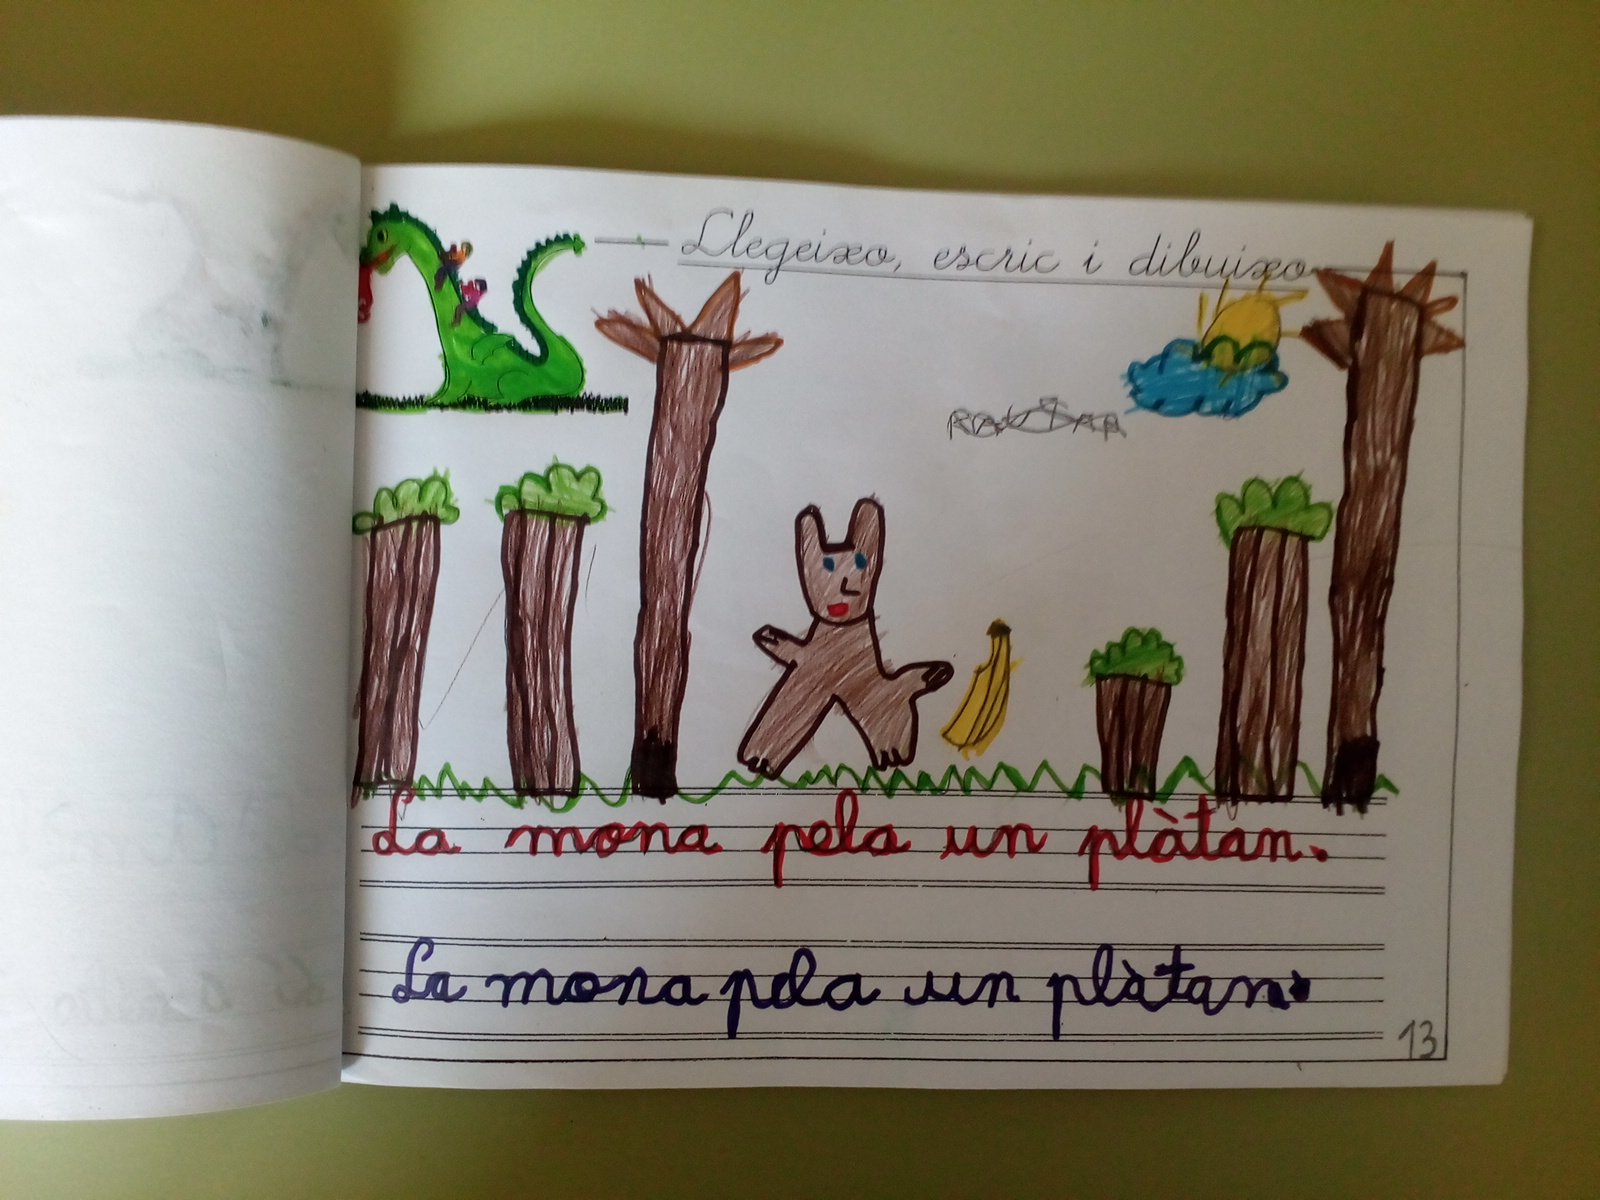 Llegeixo, escric i dibuixo
La mona pela un plàtan.
La mona pela un plàtan.
13